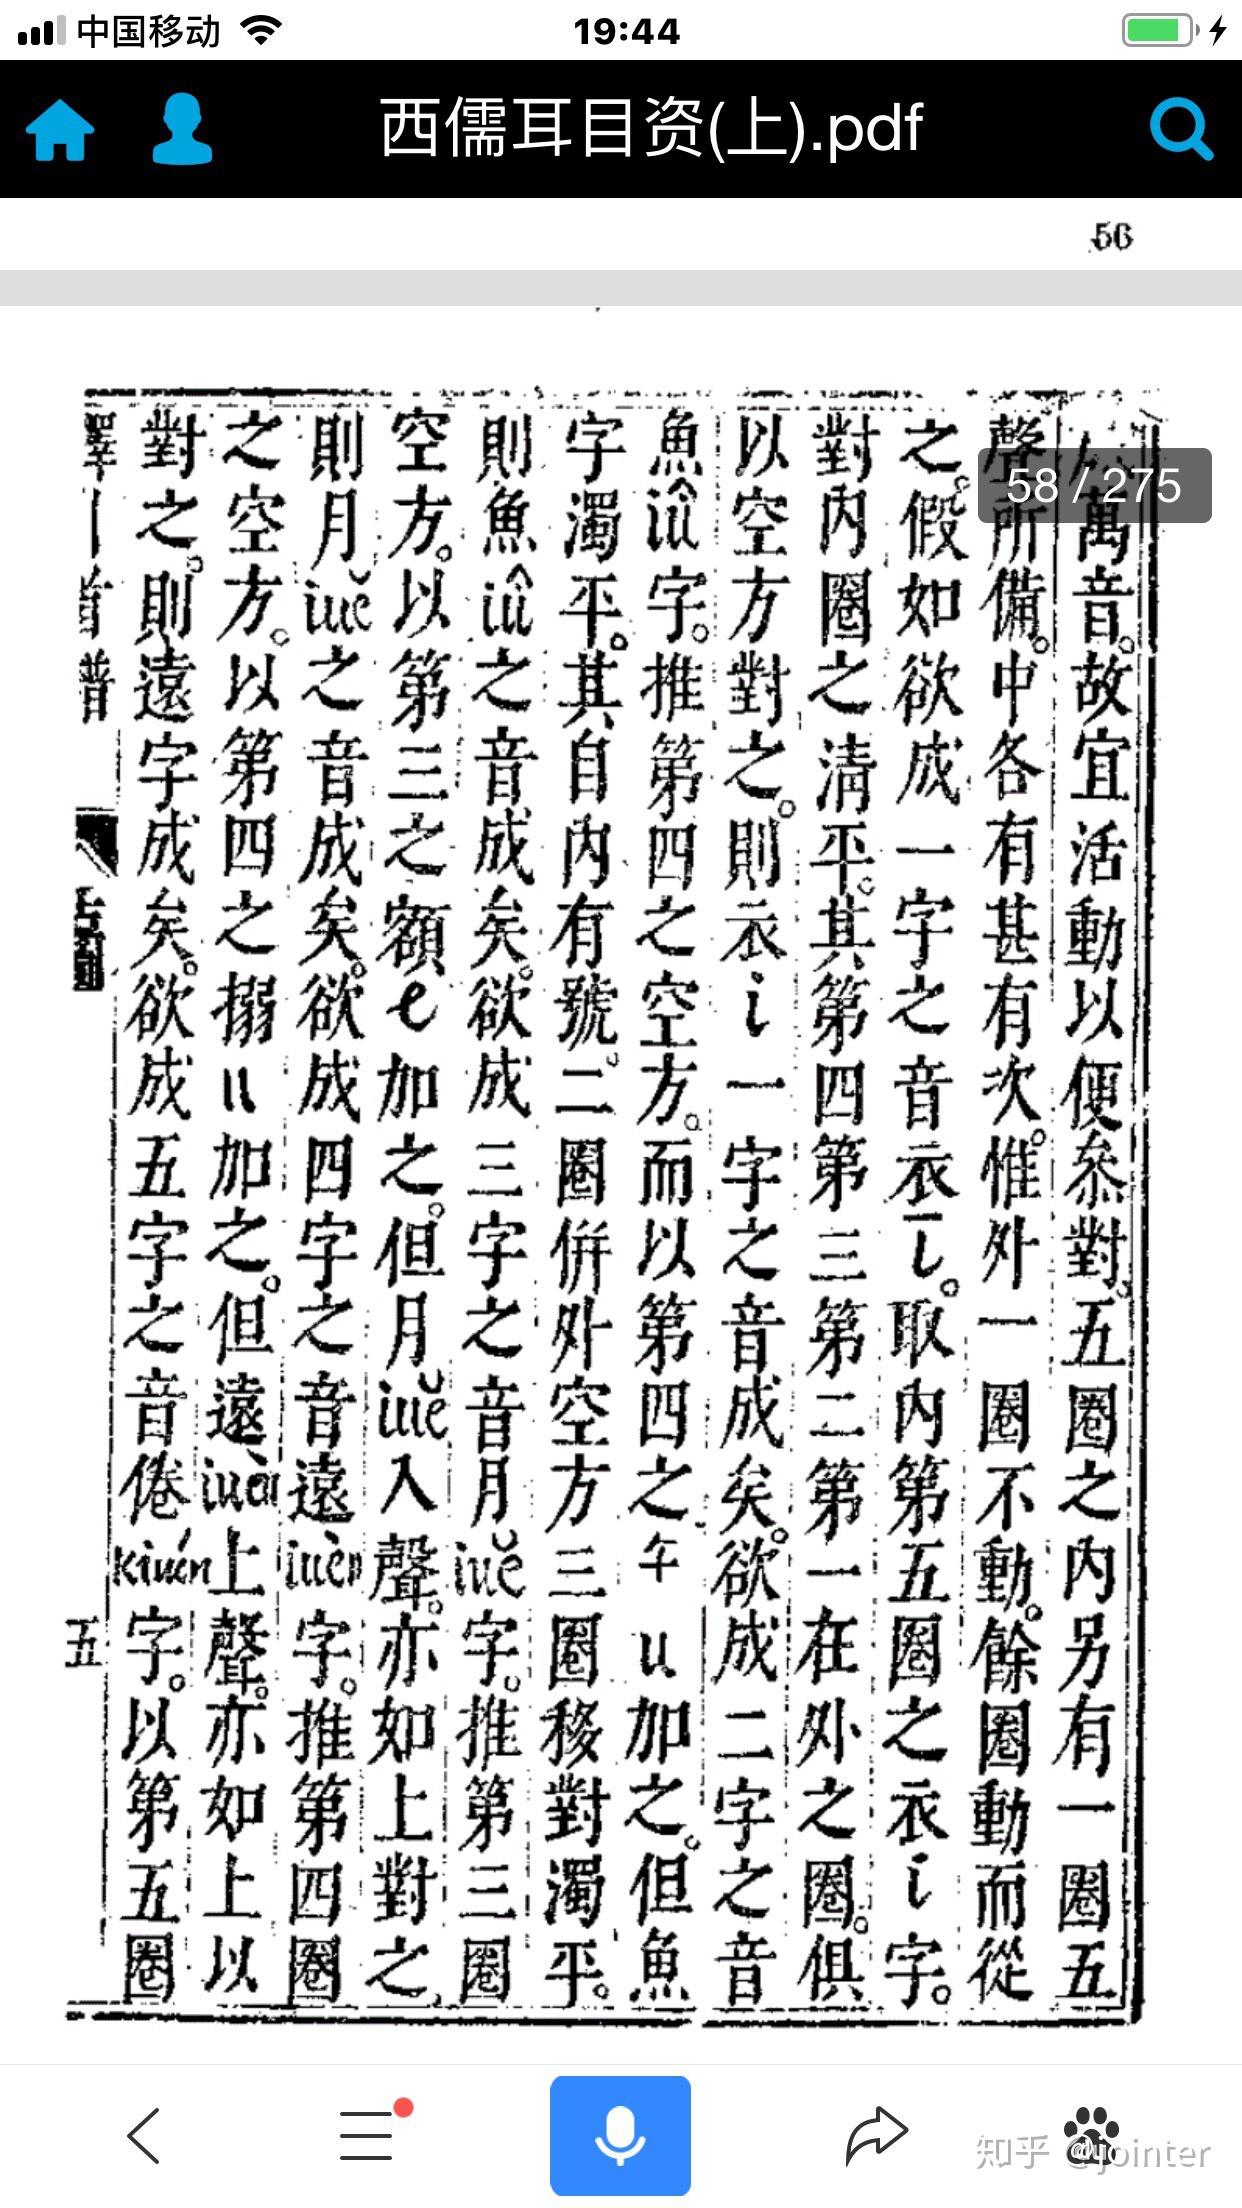 中国移动 19:44
西儒耳目资(上).pdf
56
58 / 275
萬音。故宜活動以便叅對。五圈之內另有一圈五
聲所備。中各有甚有次。惟外一圈不動。餘圈動而從
之。假如欲成一字之音衣ī。取內第五圈之衣i字。
對內圈之清平。其第四第三第二第一在外之圈。俱
以空方對之。則衣i一字之音成矣。欲成二字之音
魚iû字。推第四之空方。而以第四之午u加之。但魚
字濁平。其自內有號。二圈併外空方三圈移對濁平。
則魚iû之音成矣。欲成三字之音月iuĕ字。推第三圈
空方。以第三之額e加之。但月iuĕ入聲。亦如上對之
則月iuĕ之音成矣。欲成四字之音遠iuèn字。推第四圈
之空方。以第四之搦n加之。但遠iuèn上聲。亦如上以
對之。則遠字成矣。欲成五字之音倦kiuén字。以第五圈
五
知乎 @jointer